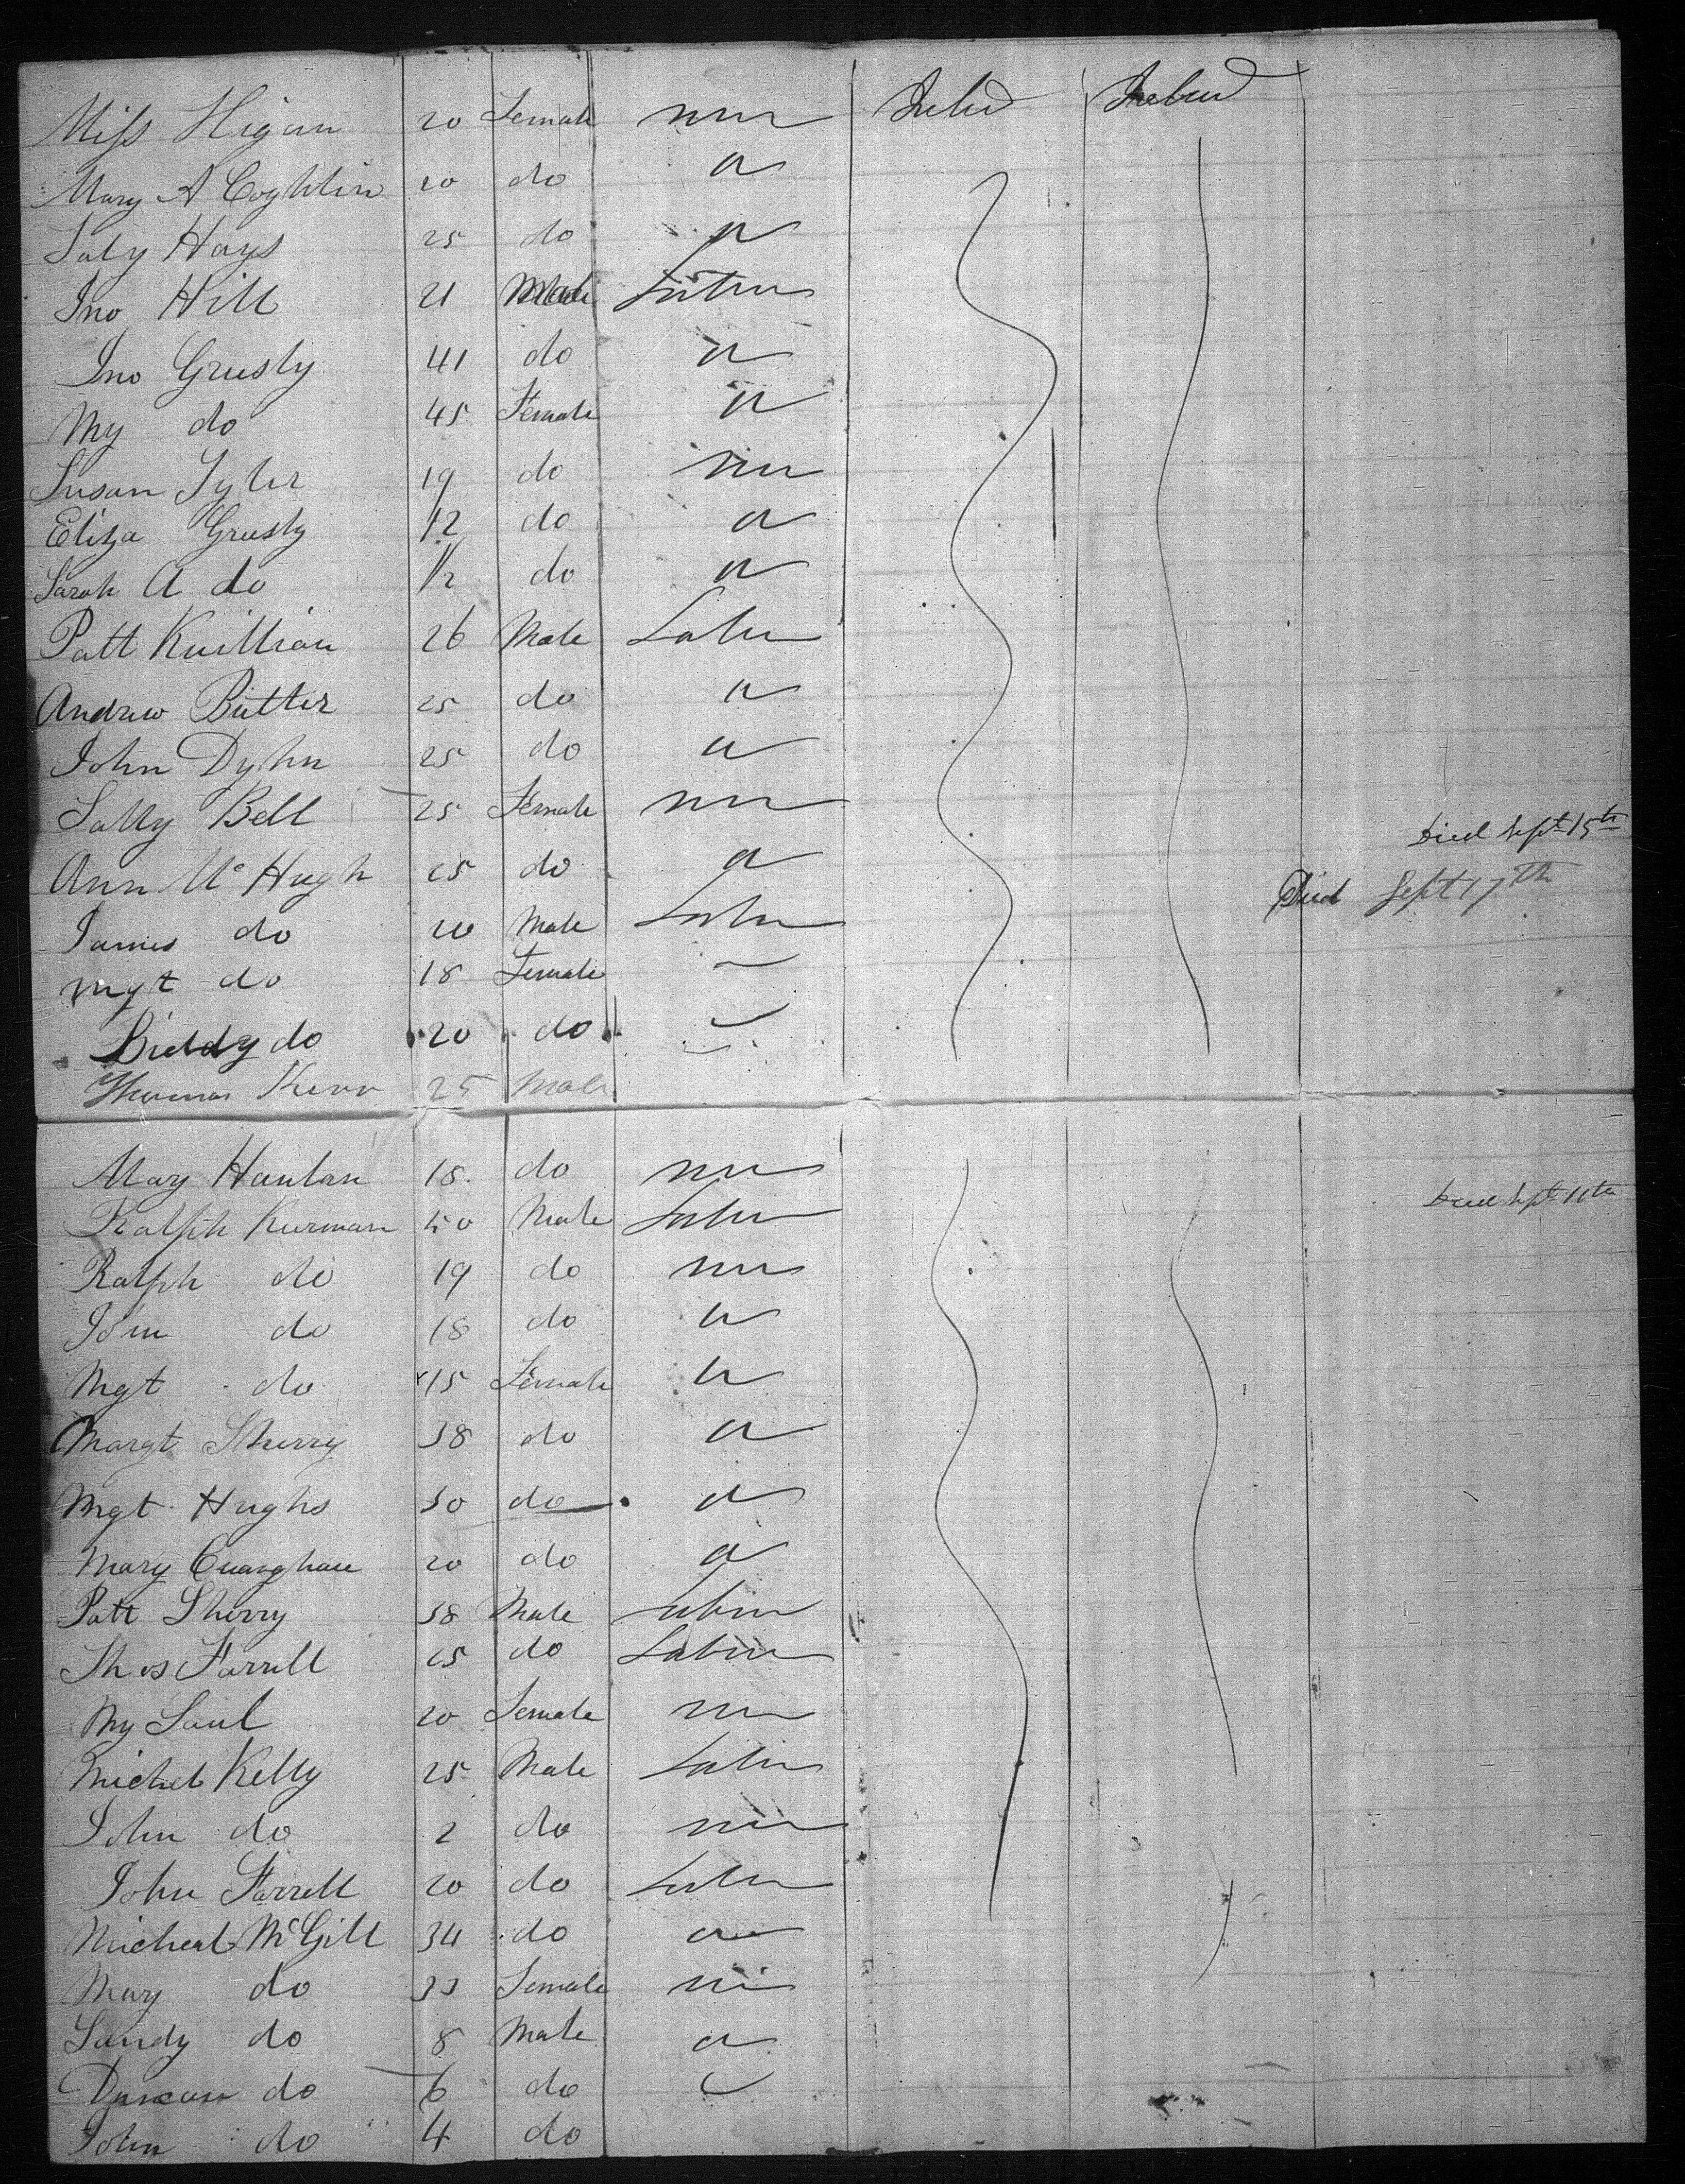 Miss Higan 20 Female nn Irelud Irelud
Mary A Coghlin 20 do "
Saly Hays 25 do "
Jno Hill 21 Male Labur
Jno Grusly 41 do "
My do 45 Female "
Susan Tyler 19 do nn
Eliza Grusly 12 do "
Sarah A do 1/2 do "
Patt Kuillian 26 Male Labur
Andrew Butter 25 do "
John Dyhn 25 do "
Sally Bell 25 Female nn Died Sept 15th
Ann Mc Hugh 25 do " Died Sept 17th
James do 20 Male Labur
Mgt do 18 Female
Biddy do 20 do
Thomas Kerr 25 Male
Mary Hanlan 18 do nn
Ralph Kurman 50 Male Labur Died Sept 11th
Ralph do 19 do nn
John do 18 do "
Mgt do 15 Female "
Margt Sherry 38 do "
Mgt Hughs 30 do "
Mary 20 do "
Patt Sherry 38 Male Labur
Thos Farrell 25 do Labur
My Saul 20 Female nn
Michel Kelly 25 Male Labur
John do 2 do nn
John Farrell 20 do Labur
Micheal McGill 34 do "
Mary do 33 Female nn
Sandy do 8 Male "
Duncan do 6 do "
John do 4 do